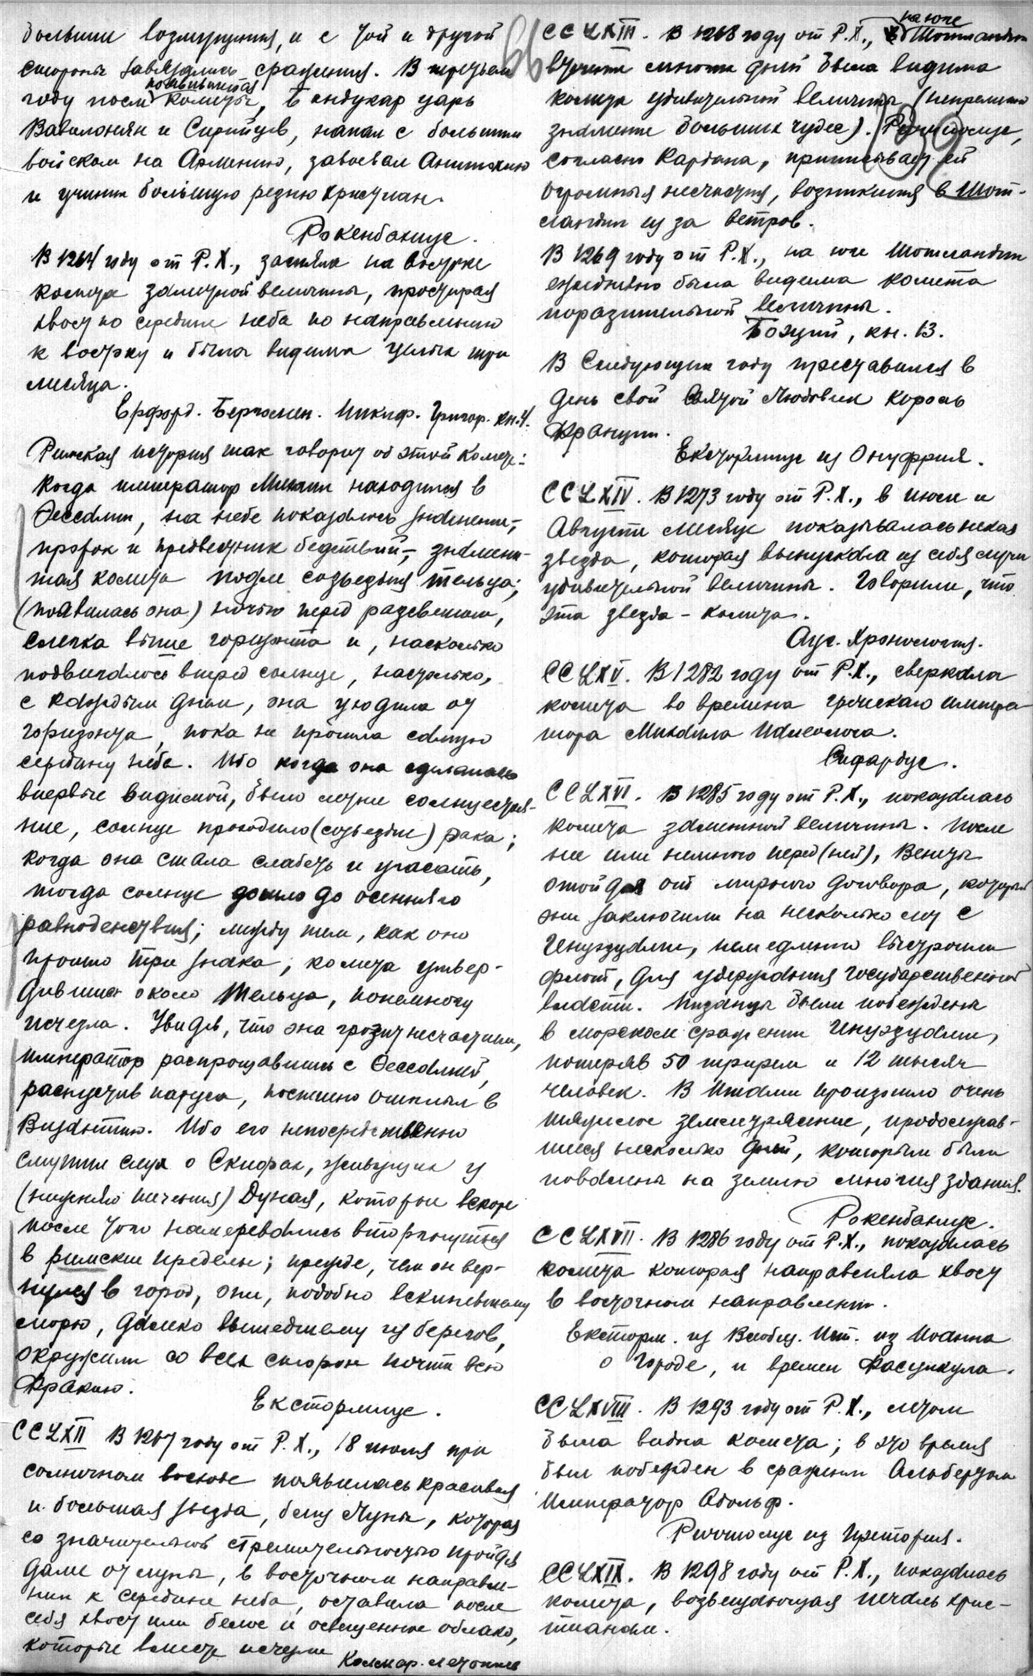 большие возмущения, и с той и другой
стороны завязались сражения. В третьем
году после появившейся кометы, Бендукар царь
Вавилонян и Сирийцев, напал с большим
войском на Армению, завоевал Антиохию
и учинил большую резню христиан.
Рокенбахиус.
В 1264 году от Р.Х., засияла на востоке
комета заметной величины, простирая
хвост по середине неба по направлению
к востоку и была видима целых три
месяца.
Ерфорд. Бергомен. Никиф. Григор. кн. 4.
Римская история так говорит об этой комете:
Когда император Михаил находился в
Фессалии, на небе показалось знамение,
пророк и предвестник бедствий, — знамени-
тая комета подле созвездия Тельца;
(появилась она) ночью перед рассветом,
слегка выше горизонта и, насколько
подвигалось вперед солнце, настолько,
с каждым днем, она уходила от
горизонта, пока не прошла самую
середину неба. Ибо когда она сделалась
впервые видимой, было летнее солнцестоя-
ние, солнце проходило (созвездие) Рака;
когда она стала слабеть и угасать,
тогда солнце дошло до осеннего
равноденствия; между тем, как оно
прошло три знака, комета утвер-
дившись около Тельца, понемногу
исчезла. Увидев, что она грозит несчастием,
император распрощавшись с Фессалией,
распустив паруса, поспешно отплыл в
Византию. Ибо его непосредственно
смутил слух о Скифах, живущих у
(нижнего течения) Дуная, которые вскоре
после того намеревались вторгнуться
в римские пределы; прежде, чем он вер-
нулся в город, они, подобно вскипевшему
морю, далеко вышедшему из берегов,
окружили со всех сторон почти всю
Фракию.
Eксtормиус.
CCLXII В 1267 году от Р.Х., 18 июля при
солнечном восходе появилась красивая
и большая звезда, близ Луны, которая
со значительной стремительностью пройдя
далее от луны, в восточном направле-
нии к середине неба, оставила после
себя хвост или белое и освещенное облако,
которые вместе исчезли
Колмар. летопись
CCLXIII. В 1268 году от Р.Х., на юге Шотландии
в течение многих дней была видима
комета удивительной величины (непременно
знамение больших чудес). Ричиолиус,
согласно Кардана, приписывает ей
огромныя несчастия, возникшия в Шот-
ландии из за ветров.
139
В 1269 году от Р.Х., на юге Шотландии
ежедневно была видима комета
поразительной величины.
Боэций, кн. 13.
В следующем году преставился в
день свой Святой Людовик король
Франции.
Eксtормиус из Онуфрия.
CCLXIV. В 1273 году от Р.Х., в июле и
Августе месяце показывалась некая
звезда, которая выпускала из себя лучи
удивительной величины. Говорили, что
эта звезда — комета.
Ауг. Хронология.
CCLXV. В 1282 году от Р.Х., сверкала
комета во времена греческаго импера-
тора Михаила Палеолога.
Сифардус.
CCLXVI. В 1285 году от Р.Х., показалась
комета заметной величины. После
нее или немного перед (ней), Венеты
отойдя от мирного договора, который
они заключили на несколько лет с
Генуэзцами, немедленно выстроили
флот, для удержания государственной
власти. Пизанцы были побеждены
в морском сражении Генуэзцами,
потеряв 50 триpем и 12 тысяч
человек. В Италии произошло очень
тяжелое землетрясение, продолжав-
шееся несколько дней, которым были
повалены на землю многия здания.
Рокенбахиус.
CCLXVII. В 1286 году от Р.Х., показалась
комета которая направляла хвост
в восточном направлении.
Eксtорм. из Всеобщ. Ист. из Иоанна
о Городе, и времен Фасцикула.
CCLXVIII. В 1293 году от Р.Х., летом
была видна комета; в это время
был побежден в сражении Альбертом
Император Адольф.
Ричиолиус из Претория.
CCLXIX. В 1298 году от Р.Х., показалась
комета, возвещающая печаль хрис-
тианам.